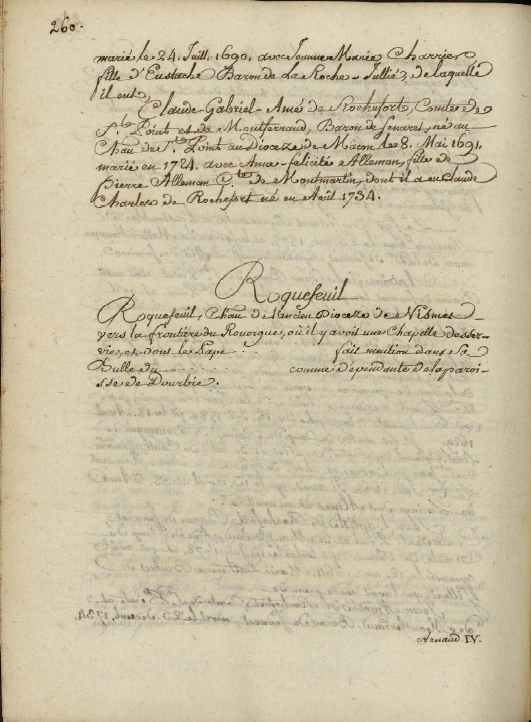 260.
marié le 24. Juill. 1690. avec Jeanne Marie Charrier
fille d'Eustache Baron de La Roche-Jullié, de laquelle
il eut,
Claude-Gabriel-Amé de Rochefort, Comte de
St. Point et de Montferrand, Baron de Senaret, né au
Chau de St. Point au Dioceze de Macon le 8. Mai 1691,
marié en 1724. avec Anne-felicité Alleman, fille de
pierre Alleman Cte de Montmartin, dont il a eu Claude
Charles de Rochefort né en Août 1734.
Roquefeuil
Roquefeuil, Chau de l'ancien Dioceze de Nismes
vers la frontiere du Rouergue, où il y avoit une Chapelle desser-
vie, et dont le Pape ... fait mention dans sa
Bulle du ... comme dependante de la paroi-
sse de Dourbie.
Arnaud IV.